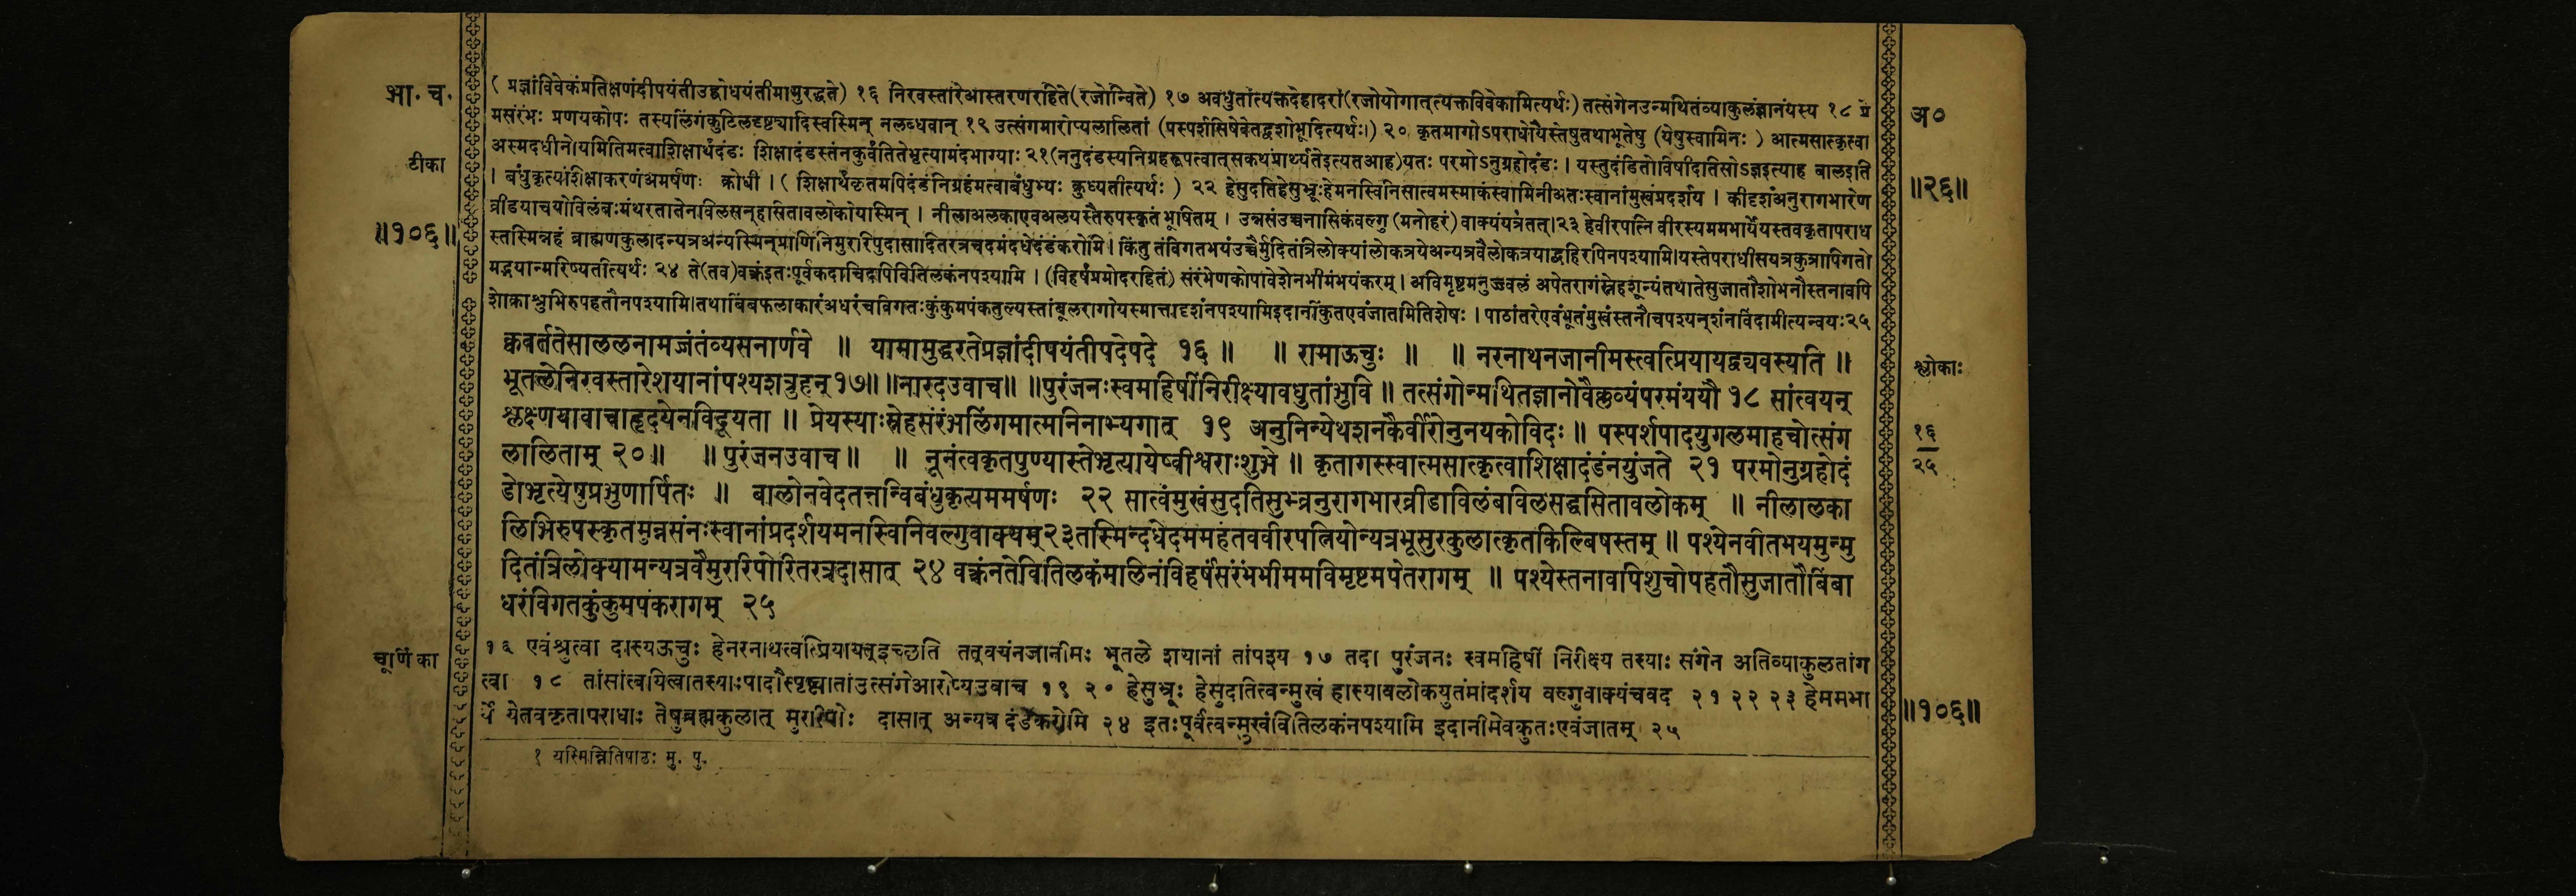 भा. च.
( प्रज्ञांविवेकंप्रतिक्षणंदीपयंतीउद्बोधयंतीमामुरद्धते) १६ निरवस्तारेआस्तरणरहिते(रजोन्विते) १७ अवधुतांत्यक्तदेहादरां(रजोयोगात्त्यक्तविवेकामित्यर्थः) तत्संगेनउन्मथितंव्याकुलंज्ञानंयस्य १८ प्रे
मसंरंभः प्रणयकोपः तस्यलिंगंकुटिलदृष्ट्यादिस्वस्मिन् नलब्धवान् १९ उत्संगमारोप्यलालितां (पस्पर्शसिषेवेतद्वशोभूदित्यर्थः।) २० कृतमागोऽपराधोयैस्तेषुतथाभूतेषु (येषुस्वामिनः ) आत्मसात्कृत्वा
अस्मदधीनोयमितिमत्वाशिक्षार्थंदंडः शिक्षादंडस्तंनकुर्वंतितेभृत्यामंदभाग्याः २१(ननुदंडस्यनिग्रहरूपत्वात्सकथंप्रार्थ्यतेइत्यतआह)यतः परमोऽनुग्रहोदंडः । यस्तुदंडितोविषीदतिसोऽज्ञइत्याह बालइति
। बंधुकृत्यंशिक्षाकरणंअमर्षणः क्रोधी । ( शिक्षार्थंकृतमपिदंडंनिग्रहंमत्वाबंधुभ्यः क्रुध्यतीत्यर्थः ) २२ हेसुदतिहेसुभ्रूःहेमनस्विनिसात्वमस्माकंस्वामिनीअतःस्वानांमुखंप्रदर्शय । कीदृशंअनुरागभारेण
व्रीडयाचयोविलंबःमंथरतातेनविलसन्हासितावलोकोयस्मिन् । नीलाअलकाएवअलयस्तैरुपस्कृतं भूषितम् । उन्नसंउच्चनासिकंवल्गु (मनोहरं) वाक्यंयत्रतत्।२३ हेवीरपत्नि वीरस्यममभार्येयस्तवकृतापराध
स्तस्मिन्नहं ब्राह्मणकुलादन्यत्रअन्यस्मिन्प्राणिनिमुरारिपुदासादितरत्रचदमंदधेदंडंकरोमि। किंतु तंविगतभयंउच्चैर्मुदितंत्रिलोक्यांलोकत्रयेअन्यत्रवैलोकत्रयाद्बहिरपिनपश्यामि।यस्तेपराधीसयत्रकुत्रापिगतो
मद्भयान्मरिष्यतीत्यर्थः २४ ते(तव)वक्त्रंइतःपूर्वंकदाचिदपिवितिलकंनपश्यामि । (विहर्षंप्रमोदरहितं) संरंभेणकोपावेशेनभीमंभयंकरम्। अविमृष्टमनुज्ज्वलं अपेतरागंस्नेहशून्यंतथातेसुजातौशोभनौस्तनावपि
शोकाश्रुभिरुपहतौनपश्यामि।तथाबिंबफलाकारंअधरंचविगतःकुंकुमपंकतुल्यस्तांबूलरागोयस्मात्तादृशंनपश्यामिइदानींकुतएवंजातमितिशेषः । पाठांतरेएवंभूतंमुखंस्तनौचपश्यन्शंनविंदामीत्यन्वयः२५
टीका
॥१०६॥
अ०
॥२६॥
क्ववर्ततेसाललनामज्जंतंव्यसनार्णवे ॥ यामामुद्धरतेप्रज्ञांदीपयंतीपदेपदे १६ ॥ ॥ रामाऊचुः ॥ ॥ नरनाथनजानीमस्त्वत्प्रियायद्व्यवस्यति ॥
भूतलेनिरवस्तारेशयानांपश्यशत्रुहन् १७॥ ॥नारदउवाच॥ ॥पुरंजनःस्वमहिषींनिरीक्ष्यावधुतांभुवि ॥ तत्संगोन्मथितज्ञानोवैक्लव्यंपरमंययौ १८ सांत्वयन्
श्लक्ष्णयावाचाहृदयेनविदूयता ॥ प्रेयस्याःस्नेहसंरंभलिंगमात्मनिनाभ्यगात् १९ अनुनिन्येथशनकैर्वीरोनुनयकोविदः ॥ पस्पर्शपादयुगलमाहचोत्संग
लालिताम् २० ॥ ॥ पुरंजनउवाच ॥ ॥ नूनंत्वकृतपुण्यास्तेभृत्यायेष्वीश्वराःशुभे ॥ कृतागस्स्वात्मसात्कृत्वाशिक्षादंडंनयुंजते २१ परमोनुग्रहोदं
डोभृत्येषुप्रभुणार्पितः ॥ बालोनवेदतत्तन्विबंधुकृत्यममर्षणः २२ सात्वंमुखंसुदतिसुभ्र्वनुरागभारव्रीडाविलंबविलसद्धसितावलोकम् ॥ नीलालका
लिभिरुपस्कृतमुन्नसंनःस्वानांप्रदर्शयमनस्विनिवल्गुवाक्यम्२३तस्मिन्दधेदममहंतववीरपत्नियोन्यत्रभूसुरकुलात्कृतकिल्बिषस्तम् ॥ पश्येनवीतभयमुन्मु
दितंत्रिलोक्यामन्यत्रवैमुररिपोरितरत्रदासात् २४ वक्त्रंनतेवितिलकंमलिनंविहर्षंसंरंभभीममविमृष्टमपेतरागम् ॥ पश्येस्तनावपिशुचोपहतौसुजातौबिंबा
धरंविगतकुंकुमपंकरागम् २५
श्लोकाः
१६
२५
चूर्णिका
१६ एवंश्रुत्वा दास्यऊचुः हेनरनाथत्वत्प्रियायत्इच्छति तत्वयंनजानीमः भूतले शयानां तांपश्य १७ तदा पुरंजनः स्वमहिषीं निरीक्ष्य तस्याः संगेन अतिव्याकुलतांग
त्वा १८ तांसांत्वयित्वातस्याःपादौस्पृष्ट्वातांउत्संगेआरोप्यउवाच १९ २० हेसुभ्रूः हेसुदतित्वन्मुखं हास्यावलोकयुतंमांदर्शय वल्गुवाक्यंचवद २१ २२ २३ हेममभा
र्ये येतवकृतापराधाः तेषुब्रह्मकुलात् मुरारिपोः दासात् अन्यत्र दंडंकरोमि २४ इतःपूर्वंत्वन्मुखंवितिलकंनपश्यामि इदानीमेवकुतःएवंजातम् २५
॥१०६॥
१ यस्मिन्नितिपाठः मु. पु.